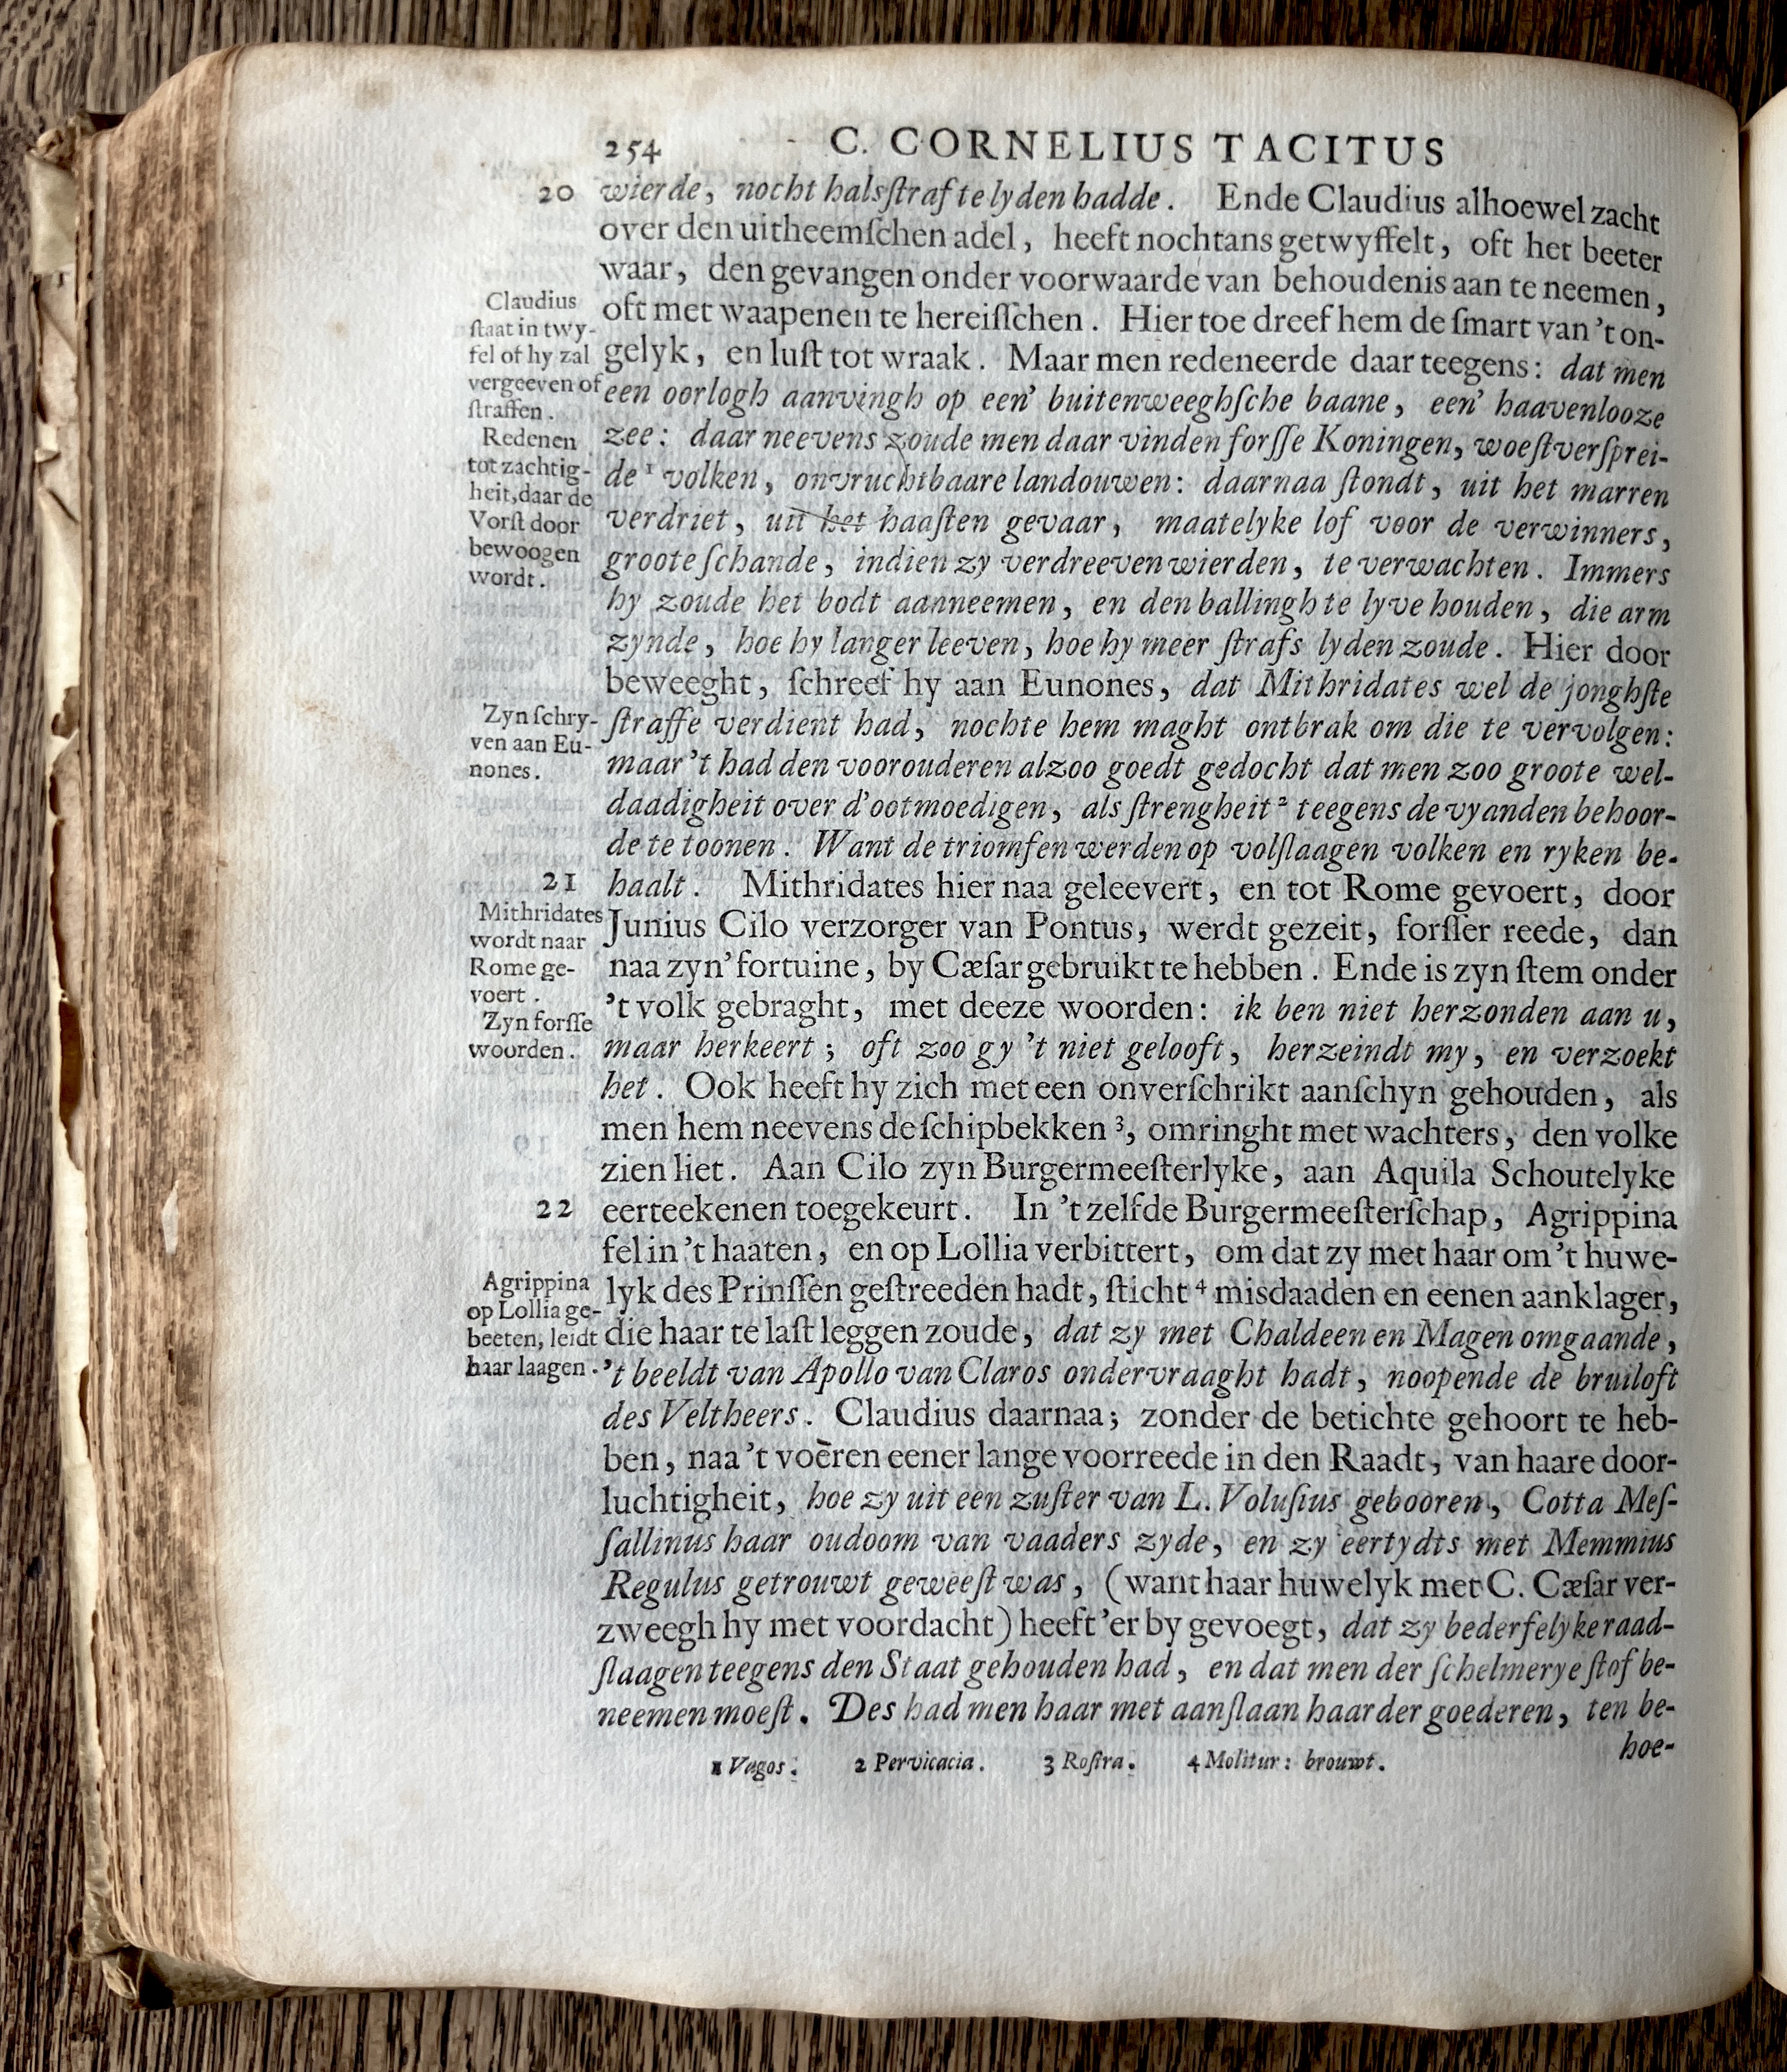 254 C. CORNELIUS TACITUS
20 wierde, nocht halsſtraf te lyden hadde. Ende Claudius alhoewel zacht
over den uitheemſchen adel, heeft nochtans getwyffelt, oft het beeter
waar, den gevangen onder voorwaarde van behoudenis aan te neemen,
oft met waapenen te hereiſſchen. Hier toe dreef hem de ſmart van 't on-
gelyk, en luſt tot wraak. Maar men redeneerde daar teegens: dat men
een oorlogh aanvingh op een' buitenweeghſche baane, een' haavenlooze
zee: daar neevens zoude men daar vinden forſſe Koningen, woeſt verſprei-
de ¹ volken, onvruchtbaare landouwen: daarnaa ſtondt, uit het marren
verdriet, uit het haaſten gevaar, maatelyke lof voor de verwinners,
groote ſchande, indien zy verdreeven wierden, te verwachten. Immers
hy zoude het bodt aanneemen, en den ballingh te lyve houden, die arm
zynde, hoe hy langer leeven, hoe hy meer ſtrafs lyden zoude. Hier door
beweeght, ſchreef hy aan Eunones, dat Mithridates wel de jonghſte
ſtraffe verdient had, nochte hem maght ontbrak om die te vervolgen:
maar 't had den voorouderen alzoo goedt gedocht dat men zoo groote wel-
daadigheit over d'ootmoedigen, als ſtrengheit ² teegens de vyanden behoor-
de te toonen. Want de triomfen werden op volſlaagen volken en ryken be-
21 haalt. Mithridates hier naa geleevert, en tot Rome gevoert, door
Junius Cilo verzorger van Pontus, werdt gezeit, forſſer reede, dan
naa zyn' fortuine, by Cæſar gebruikt te hebben. Ende is zyn ſtem onder
't volk gebraght, met deeze woorden: ik ben niet herzonden aan u,
maar herkeert; oft zoo gy 't niet gelooft, herzeindt my, en verzoekt
het. Ook heeft hy zich met een onverſchrikt aanſchyn gehouden, als
men hem neevens de ſchipbekken ³, omringht met wachters, den volke
zien liet. Aan Cilo zyn Burgermeeſterlyke, aan Aquila Schoutelyke
22 eerteekenen toegekeurt. In 't zelfde Burgermeeſterſchap, Agrippina
fel in 't haaten, en op Lollia verbittert, om dat zy met haar om 't huwe-
lyk des Prinſſen geſtreeden hadt, ſticht ⁴ misdaaden en eenen aanklager,
die haar te laſt leggen zoude, dat zy met Chaldeen en Magen omgaande,
't beeldt van Apollo van Claros ondervraaght hadt, noopende de bruiloft
des Veltheers. Claudius daarnaa; zonder de betichte gehoort te heb-
ben, naa 't voeren eener lange voorreede in den Raadt, van haare door-
luchtigheit, hoe zy uit een zuſter van L. Voluſius gebooren, Cotta Meſ-
ſallinus haar oudoom van vaaders zyde, en zy eertydts met Memmius
Regulus getrouwt geweeſt was, (want haar huwelyk met C. Cæſar ver-
zweegh hy met voordacht) heeft 'er by gevoegt, dat zy bederfelyke raad-
ſlaagen teegens den Staat gehouden had, en dat men der ſchelmerye ſtof be-
neemen moeſt. Des had men haar met aanſlaan haarder goederen, ten be-
hoe-
Claudius
ſtaat in twy-
fel of hy zal
vergeeven of
ſtraffen.
Redenen
tot zachtig-
heit, daar de
Vorſt door
bewoogen
wordt.
Zyn ſchry-
ven aan Eu-
nones.
Mithridates
wordt naar
Rome ge-
voert.
Zyn forſſe
woorden.
Agrippina
op Lollia ge-
beeten, leidt
haar laagen.
1 Vagos. 2 Pervicacia. 3 Roſtra. 4 Molitur: brouwt.